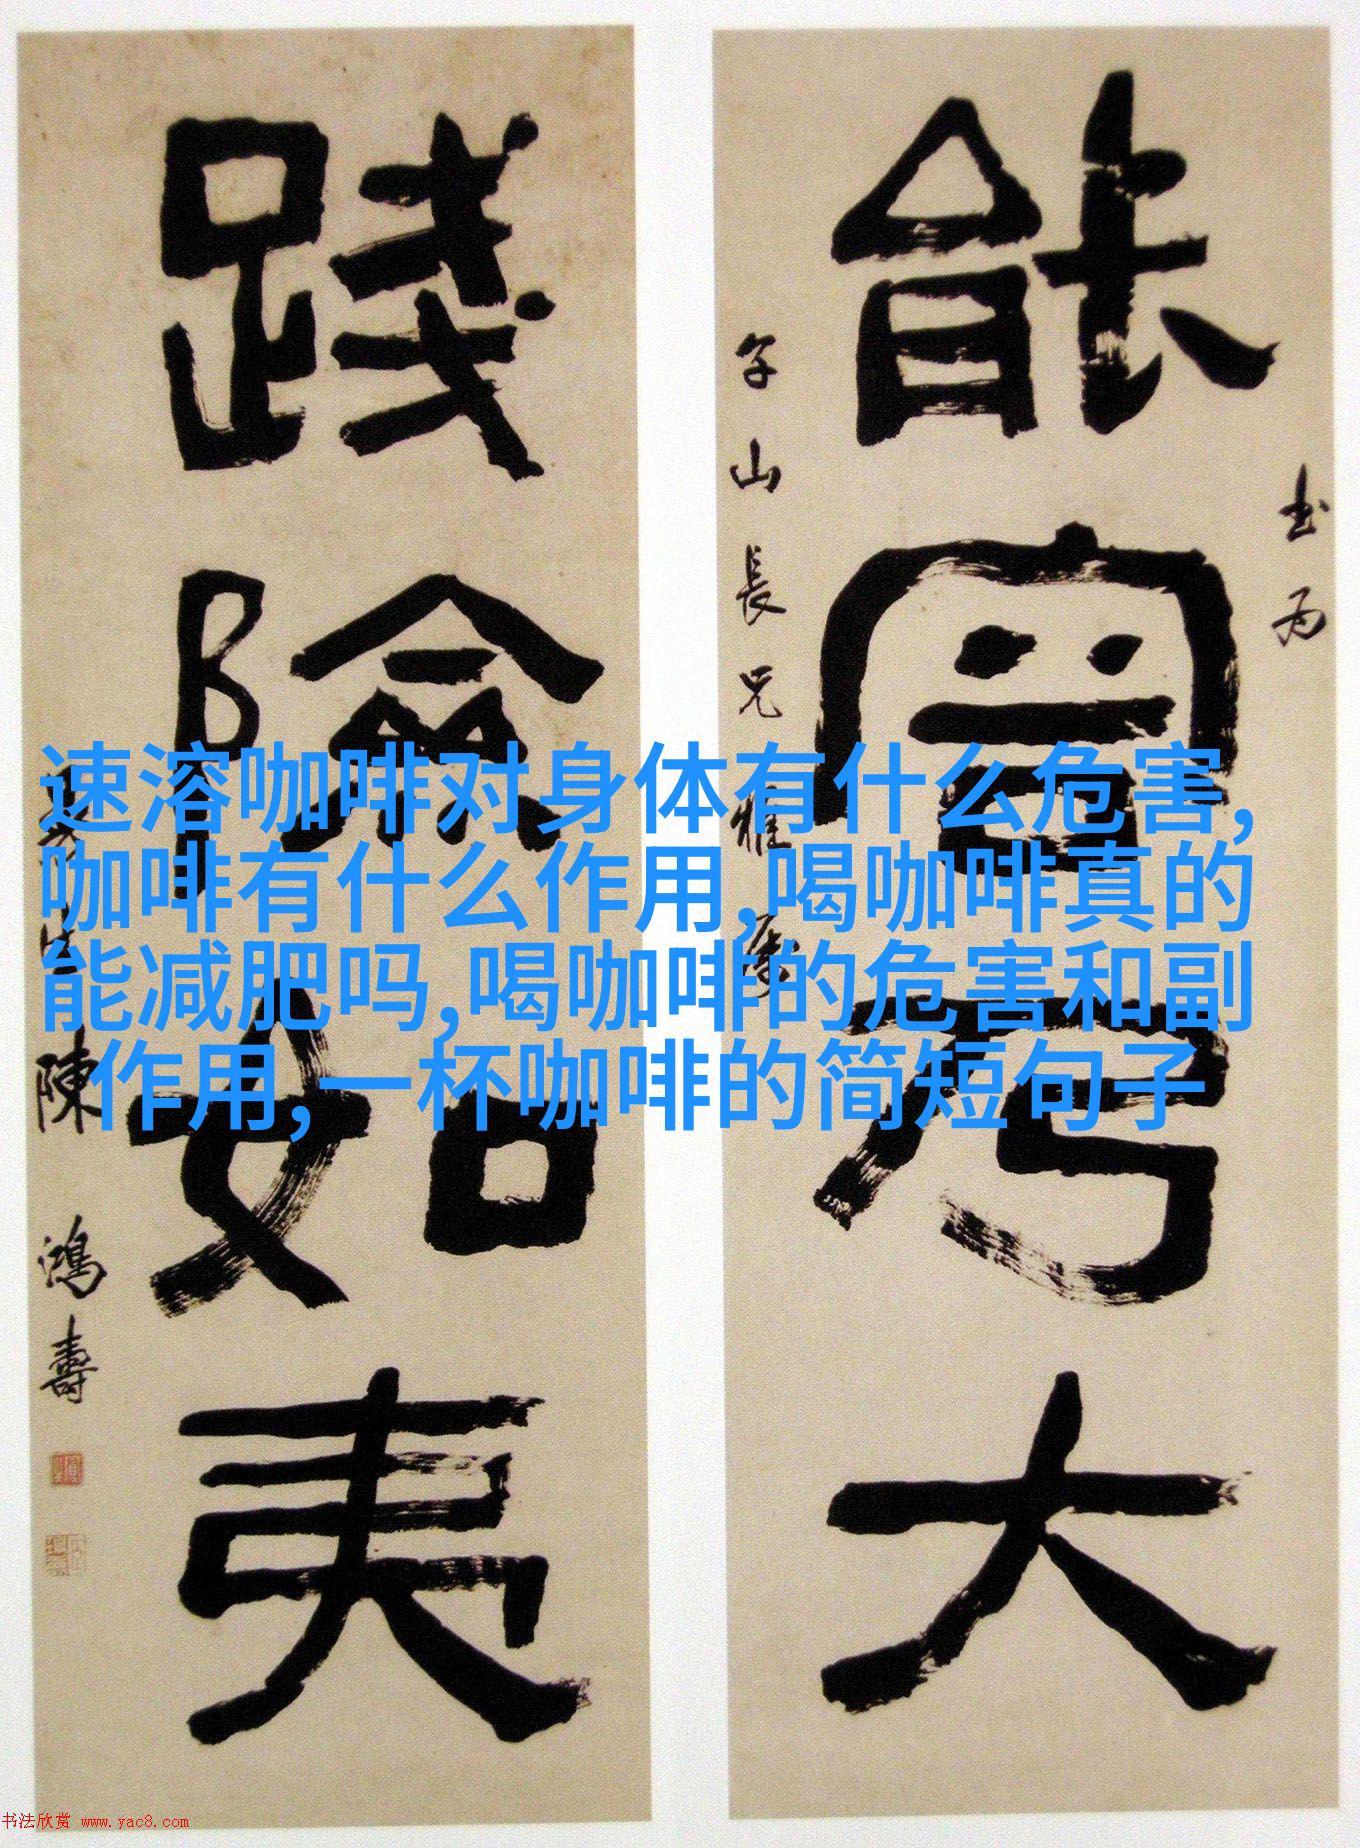 速溶咖啡对身体有什么危害,
咖啡有什么作用,喝咖啡真的
能减肥吗,喝咖啡的危害和副
作用,一杯咖啡的简短句子
书为
能容乃大
山長兄雅属
踐險如夷
曼生陳鴻壽
书法欣赏 www.yac8.com